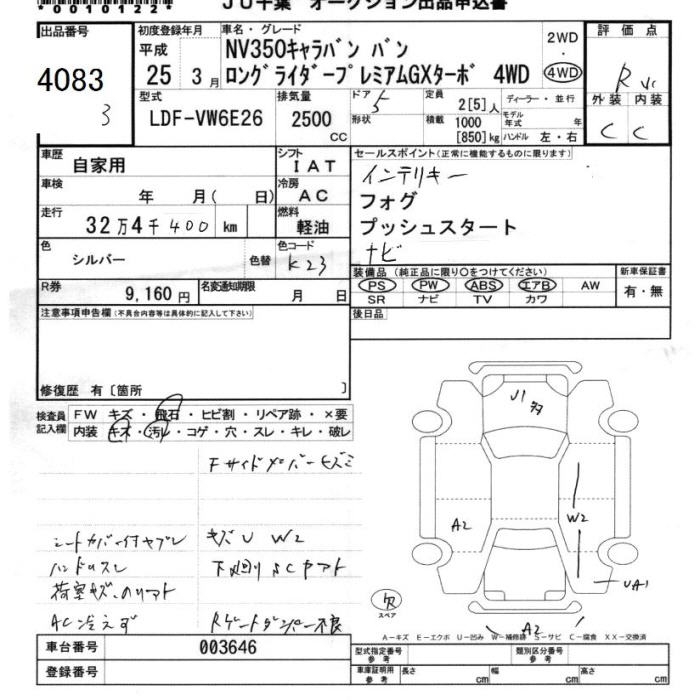 JU千葉 オークション出品申込書
出品番号
4083
3
初度登録年月
平成
25 3月
車名・グレード
NV350キャラバン バン
ロングライダープレミアムGXターボ 4WD
2WD
・
4WD
評価点
R
外装 内装
C C
型式
LDF-VW6E26
排気量
2500
CC
ドア
5
形状
定員
2[5]人
積載
1000
[850]kg
ディーラー・並行
モデル年式 年
ハンドル 左・右
車歴
自家用
シフト
IAT
車検
年 月( 日)
冷房
AC
走行
32万4千400km
燃料
軽油
色
シルバー
色替
色コード
K23
R券
9,160円
名変通知期限
月 日
セールスポイント(正常に機能するものに限ります)
インテリキー
フォグ
プッシュスタート
ナビ
装備品(純正品に限り○をつけてください)
PS PW ABS エアB AW
SR ナビ TV カワ
新車保証書
有・無
後日品
注意事項申告欄(不具合内容等は具体的に記入して下さい)
修復歴 有〔箇所 〕
検査員
記入欄
FW キズ・飛石・ヒビ割・リペア跡・×要
内装 キズ・汚レ・コゲ・穴・スレ・キレ・破レ
Fサイドメバーキズミ
シートカバー付ヤブレ
キズU W2
ハンドルスレ
下廻りSCアト
荷室キズ、ノリアト
AC冷えず
Rゲートダンパー不良
J1
A2
W2
UA1
A2
スペア
A-キズ E-エクボ U-凹み W-補修跡 S-サビ C-腐食 XX-交換済
車台番号
003646
登録番号
型式指定番号
参考
類別区分番号
参考
車庫証明用
参考
長さ cm
幅 cm
高さ cm